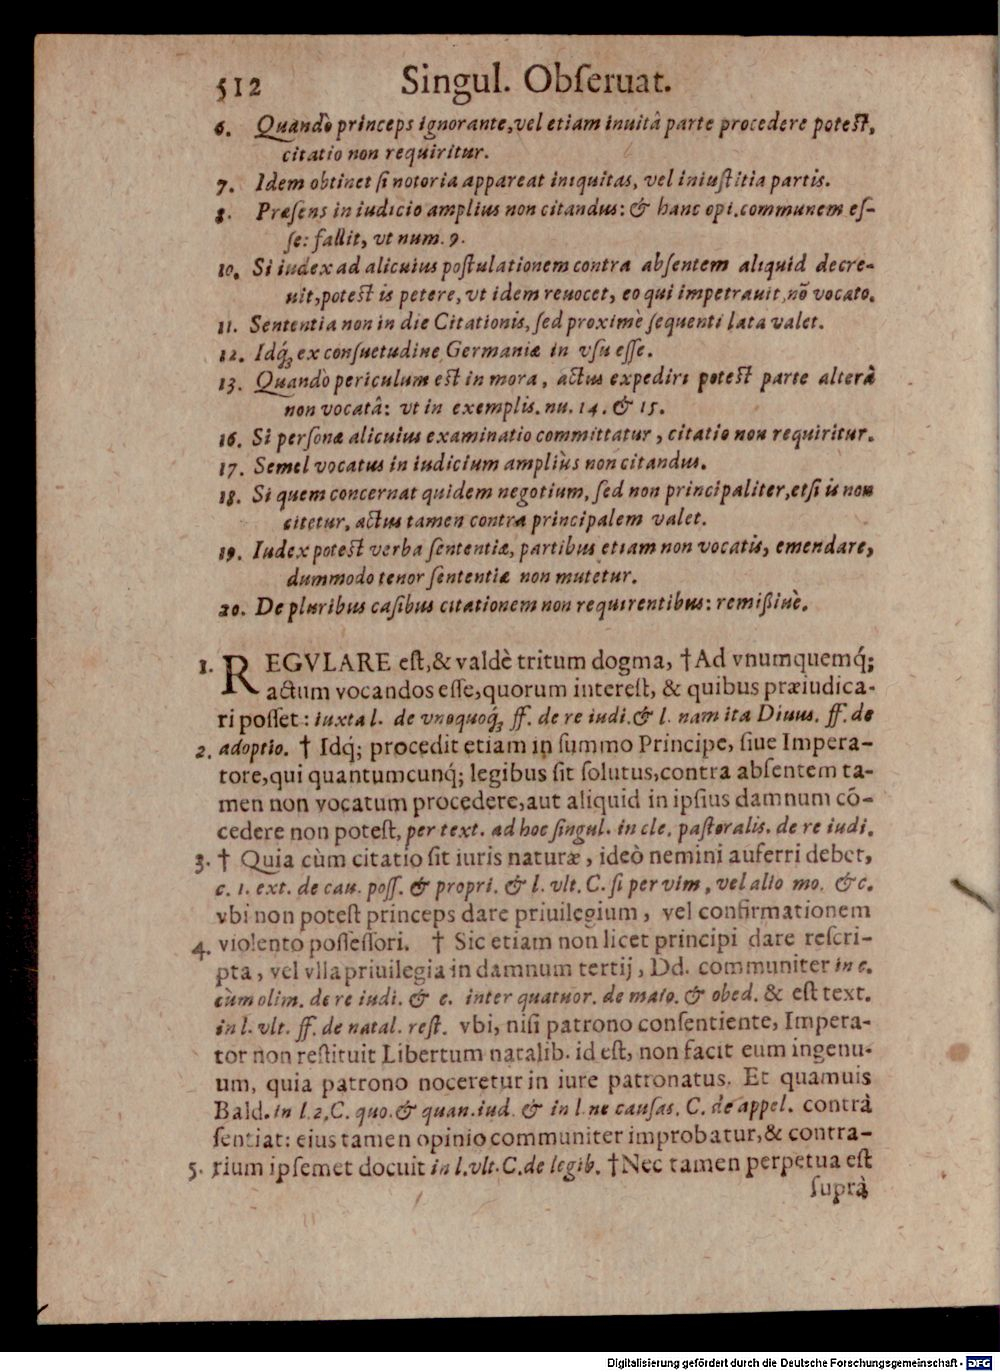 512 Singul. Obſeruat.
6. Quandò princeps ignorante, vel etiam inuitâ parte procedere poteſt,
citatio non requiritur.
7. Idem obtinet ſi notoria appareat iniquitas, vel iniuſtitia partis.
8. Præſens in iudicio amplius non citandus: & hanc opi. communem eſ-
ſe: fallit, vt num. 9.
10. Si iudex ad alicuius poſtulationem contra abſentem aliquid decre-
uit, poteſt is petere, vt idem reuocet, eo qui impetrauit, nō vocato.
11. Sententia non in die Citationis, ſed proximè ſequenti lata valet.
12. Idq́; ex conſuetudine Germaniæ in vſu eſſe.
13. Quandò periculum eſt in mora, actus expediri poteſt parte alterâ
non vocatâ: vt in exemplis. nu. 14. & 15.
16. Si perſonæ alicuius examinatio committatur, citatio non requiritur.
17. Semel vocatus in iudicium ampliùs non citandus.
18. Si quem concernat quidem negotium, ſed non principaliter, etſi is non
citetur, actus tamen contra principalem valet.
19. Iudex poteſt verba ſententiæ, partibus etiam non vocatis, emendare,
dummodo tenor ſententiæ non mutetur.
20. De pluribus caſibus citationem non requirentibus: remißiuè.
1. REGVLARE eſt, & valdè tritum dogma, † Ad vnumquemq́;
actum vocandos eſſe, quorum intereſt, & quibus præiudica-
ri poſſet: iuxta l. de vnoquoq́; ff. de re iudi. & l. nam ita Diuus. ff. de
2. adoptio. † Idq́; procedit etiam in ſummo Principe, ſiue Impera-
tore, qui quantumcunq́; legibus ſit ſolutus, contra abſentem ta-
men non vocatum procedere, aut aliquid in ipſius damnum cō-
cedere non poteſt, per text. ad hoc ſingul. in cle. paſtoralis. de re iudi.
3. † Quia cùm citatio ſit iuris naturæ, ideò nemini auferri debet,
c. 1. ext. de cau. poſſ. & propri. & l. vlt. C. ſi per vim, vel alio mo. &c.
vbi non poteſt princeps dare priuilegium, vel confirmationem
4. violento poſſeſſori. † Sic etiam non licet principi dare reſcri-
pta, vel vlla priuilegia in damnum tertij, Dd. communiter in c.
cùm olim. de re iudi. & c. inter quatuor. de maio. & obed. & eſt text.
in l. vlt. ff. de natal. reſt. vbi, niſi patrono conſentiente, Impera-
tor non reſtituit Libertum natalib. id eſt, non facit eum ingenu-
um, quia patrono noceretur in iure patronatus. Et quamuis
Bald. in l. 2. C. quo. & quan. iud. & in l. ne cauſas. C. de appel. contrà
ſentiat: eius tamen opinio communiter improbatur, & contra-
5. rium ipſemet docuit in l. vlt. C. de legib. † Nec tamen perpetua eſt
ſuprà
Digitalisierung gefördert durch die Deutsche Forschungsgemeinschaft - DFG